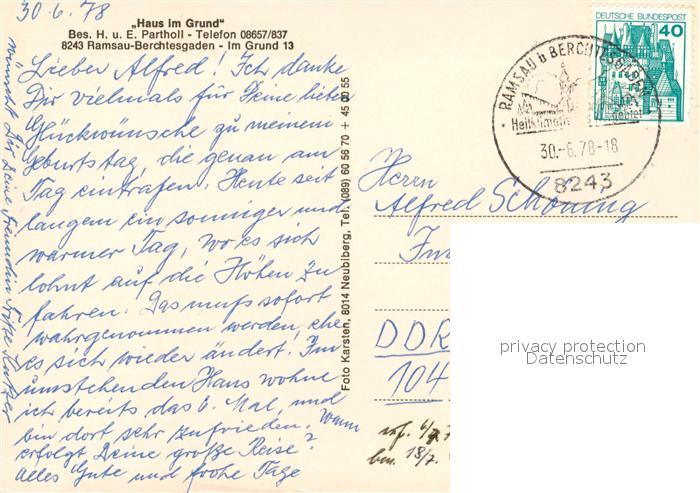 30.6.78
„Haus im Grund"
Bes. H. u. E. Partholl - Telefon 08657/837
8243 Ramsau-Berchtesgaden - Im Grund 13
Lieber Alfred! Ich danke
Dir vielmals für Deine lieben
Glückwünsche zu meinem
Geburtstag, die genau am
Tag eintrafen. Heute seit
langem ein sonniger und
warmer Tag, wo es sich
lohnt auf die Höhen zu
fahren. Das muß sofort
wahrgenommen werden, ehe
es sich wieder ändert! Im
umstehenden Haus wohne
ich bereits das 6. Mal, und
bin dort sehr zufrieden. Wann
erfolgt Deine große Reise?
Alles Gute und frohe Tage
wünscht Dir Deine Freundin
Foto Karsten, 8014 Neubiberg, Tel. (089) 60 56 70 + 45 00 55
DEUTSCHE BUNDESPOST
40
RAMSAU b BERCHTESGADEN
30.-6.78-18
8243
Herrn
Alfred Schöning
DDR
104
privacy protection
Datenschutz